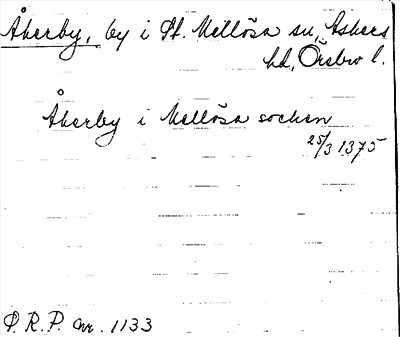 Åkerby, by i St. Mellösa sn, Askers
hd, Örebro l.
Åkerby i Mellösa socken
25/3 1375
P.R.P. nr. 1133